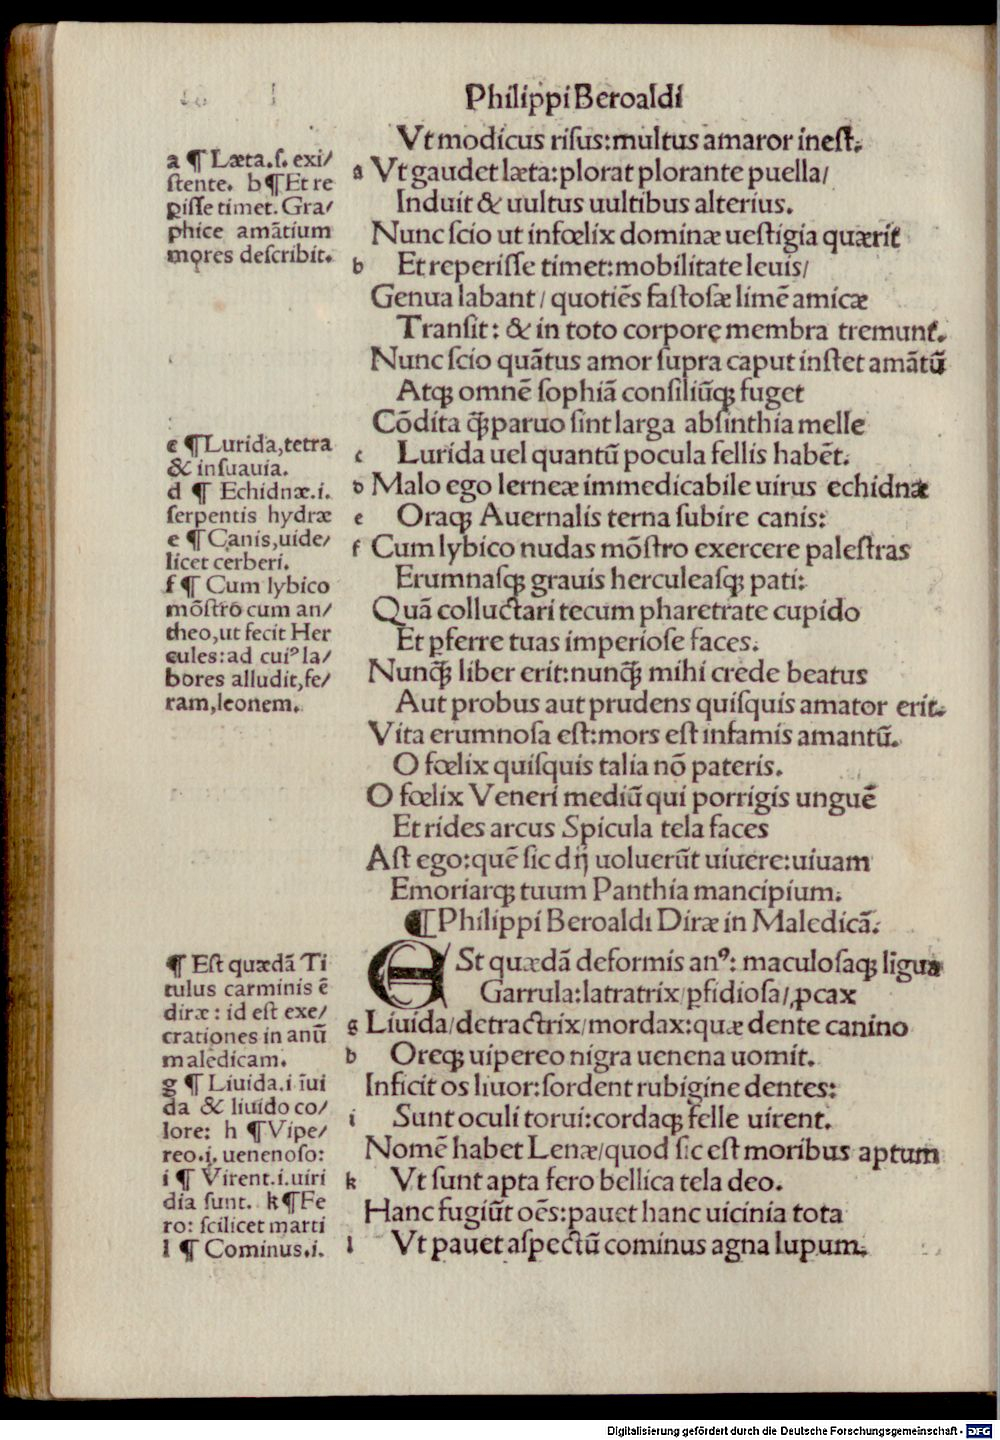 Philippi Beroaldi
Vt modicus riſus:multus amaror ineſt.
a Vt gaudet læta:plorat plorante puella/
Induit & uultus uultibus alterius.
Nunc ſcio ut infœlix dominæ ueſtigia quærit
b Et reperiſſe timet:mobilitate leuis/
Genua labant/ quotiẽs faſtoſæ limẽ amicæ
Tranſit: & in toto corporę membra tremunt.
Nunc ſcio quãtus amor ſupra caput inſtet amãtũ
Atqꝫ omnẽ ſophiã conſiliũqꝫ fuget
Cõdita q̃ꝫ paruo ſint larga abſinthia melle
c Lurida uel quantũ pocula fellis habẽt.
d Malo ego lerneæ immedicabile uirus echidnæ
e Oraqꝫ Auernalis terna ſubire canis:
f Cum lybico nudas mõſtro exercere paleſtras
Erumnaſqꝫ grauis herculeaſqꝫ pati:
Quã colluctari tecum pharetrate cupido
Et ꝑferre tuas imperioſe faces.
Nunq̃ꝫ liber erit:nunq̃ꝫ mihi crede beatus
Aut probus aut prudens quiſquis amator erit.
Vita erumnoſa eſt:mors eſt infamis amantũ.
O fœlix quiſquis talia nõ pateris.
O fœlix Veneri mediũ qui porrigis unguẽ
Et rides arcus Spicula tela faces
Aſt ego:quẽ ſic dij uoluerũt uiuere:uiuam
Emoriarqꝫ tuum Panthia mancipium.
¶Philippi Beroaldi Diræ in Maledicã.
ESt quædã deformis anꝰ: maculoſaqꝫ ligua
Garrula:latratrix/ꝑfidioſa/ꝓcax
g Liuida/detractrix/mordax:quæ dente canino
h Oreqꝫ uipereo nigra uenena uomit.
Inficit os liuor:ſordent rubigine dentes:
i Sunt oculi torui:cordaqꝫ felle uirent.
Nomẽ habet Lenæ/quod ſic eſt moribus aptum
k Vt ſunt apta fero bellica tela deo.
Hanc fugiũt oẽs:pauet hanc uicinia tota
l Vt pauet aſpectũ cominus agna lupum.
a ¶ Læta.ſ. exi/
ſtente. b¶Et re
ꝑiſſe timet. Gra/
phice amãtium
mores deſcribit.
c ¶Lurida,tetra
& inſuauia.
d ¶ Echidnæ.i.
ſerpentis hydræ
e ¶Canis,uide/
licet cerberi.
f ¶ Cum lybico
mõſtro cum an/
theo,ut fecit Her
cules:ad cuiꝰ la/
bores alludit,fe/
ram,leonem.
¶ Eſt quædã Ti
tulus carminis ẽ
diræ : id eſt exe/
crationes in anũ
maledicam.
g ¶ Liuida.i ĩui
da & liuido co/
lore: h ¶Vipe/
reo.i. uenenoſo:
i ¶ Virent.i.uiri
dia ſunt. k¶Fe
ro: ſcilicet marti
l ¶ Cominus.i.
Digitalisierung gefördert durch die Deutsche Forschungsgemeinschaft - DFG